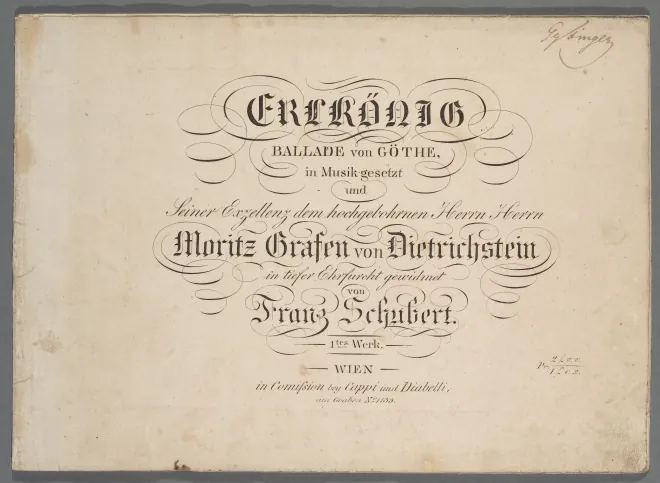 ERLKÖNIG
BALLADE von GÖTHE,
in Musik gesetzt
und
Seiner Exzellenz dem hochgebohrnen Herrn Herrn
Moritz Grafen von Dietrichstein
in tiefer Ehrfurcht gewidmet
von
Franz Schubert.
1tes Werk.
WIEN
in Comission bey Cappi und Diabelli,
am Graben No. 1133.